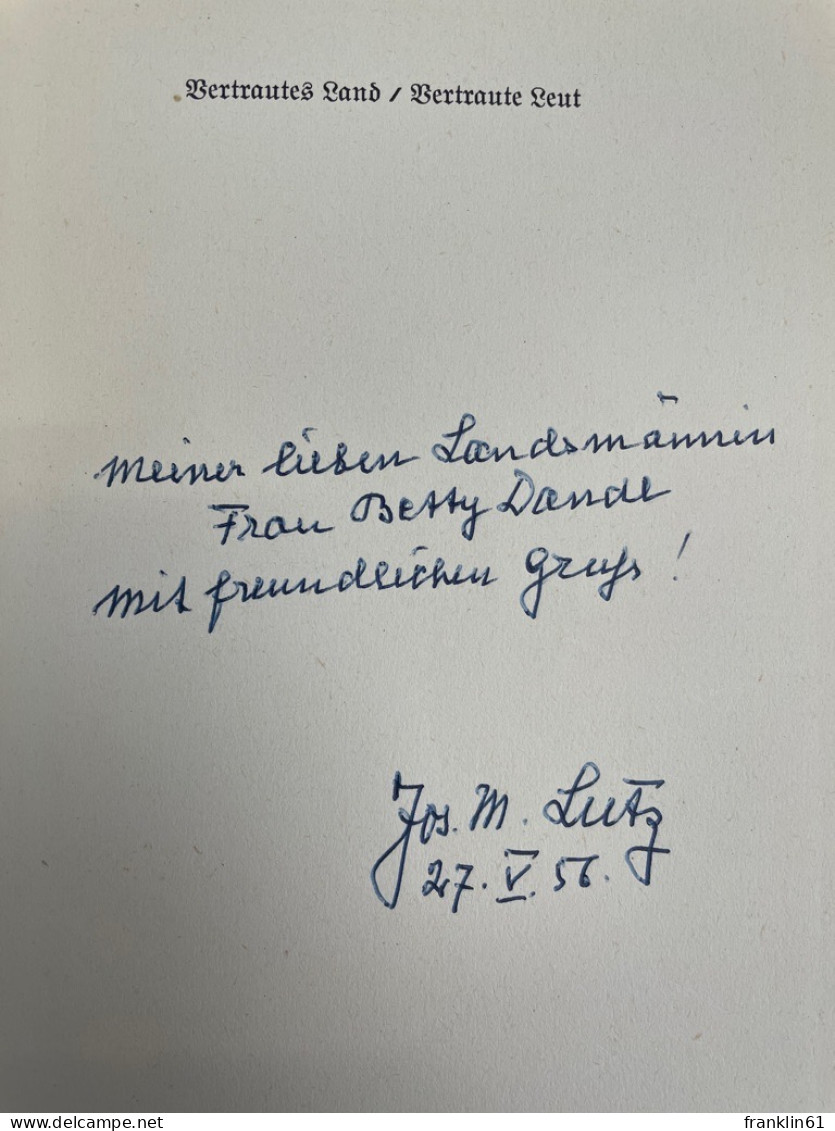 Vertrautes Land / Vertraute Leut
Meiner lieben Landsmännin
Frau Betty Dandl
mit freundlichen Gruß!
Jos. M. Lutz
27. V. 56.
www.delcampe.net
franklin61